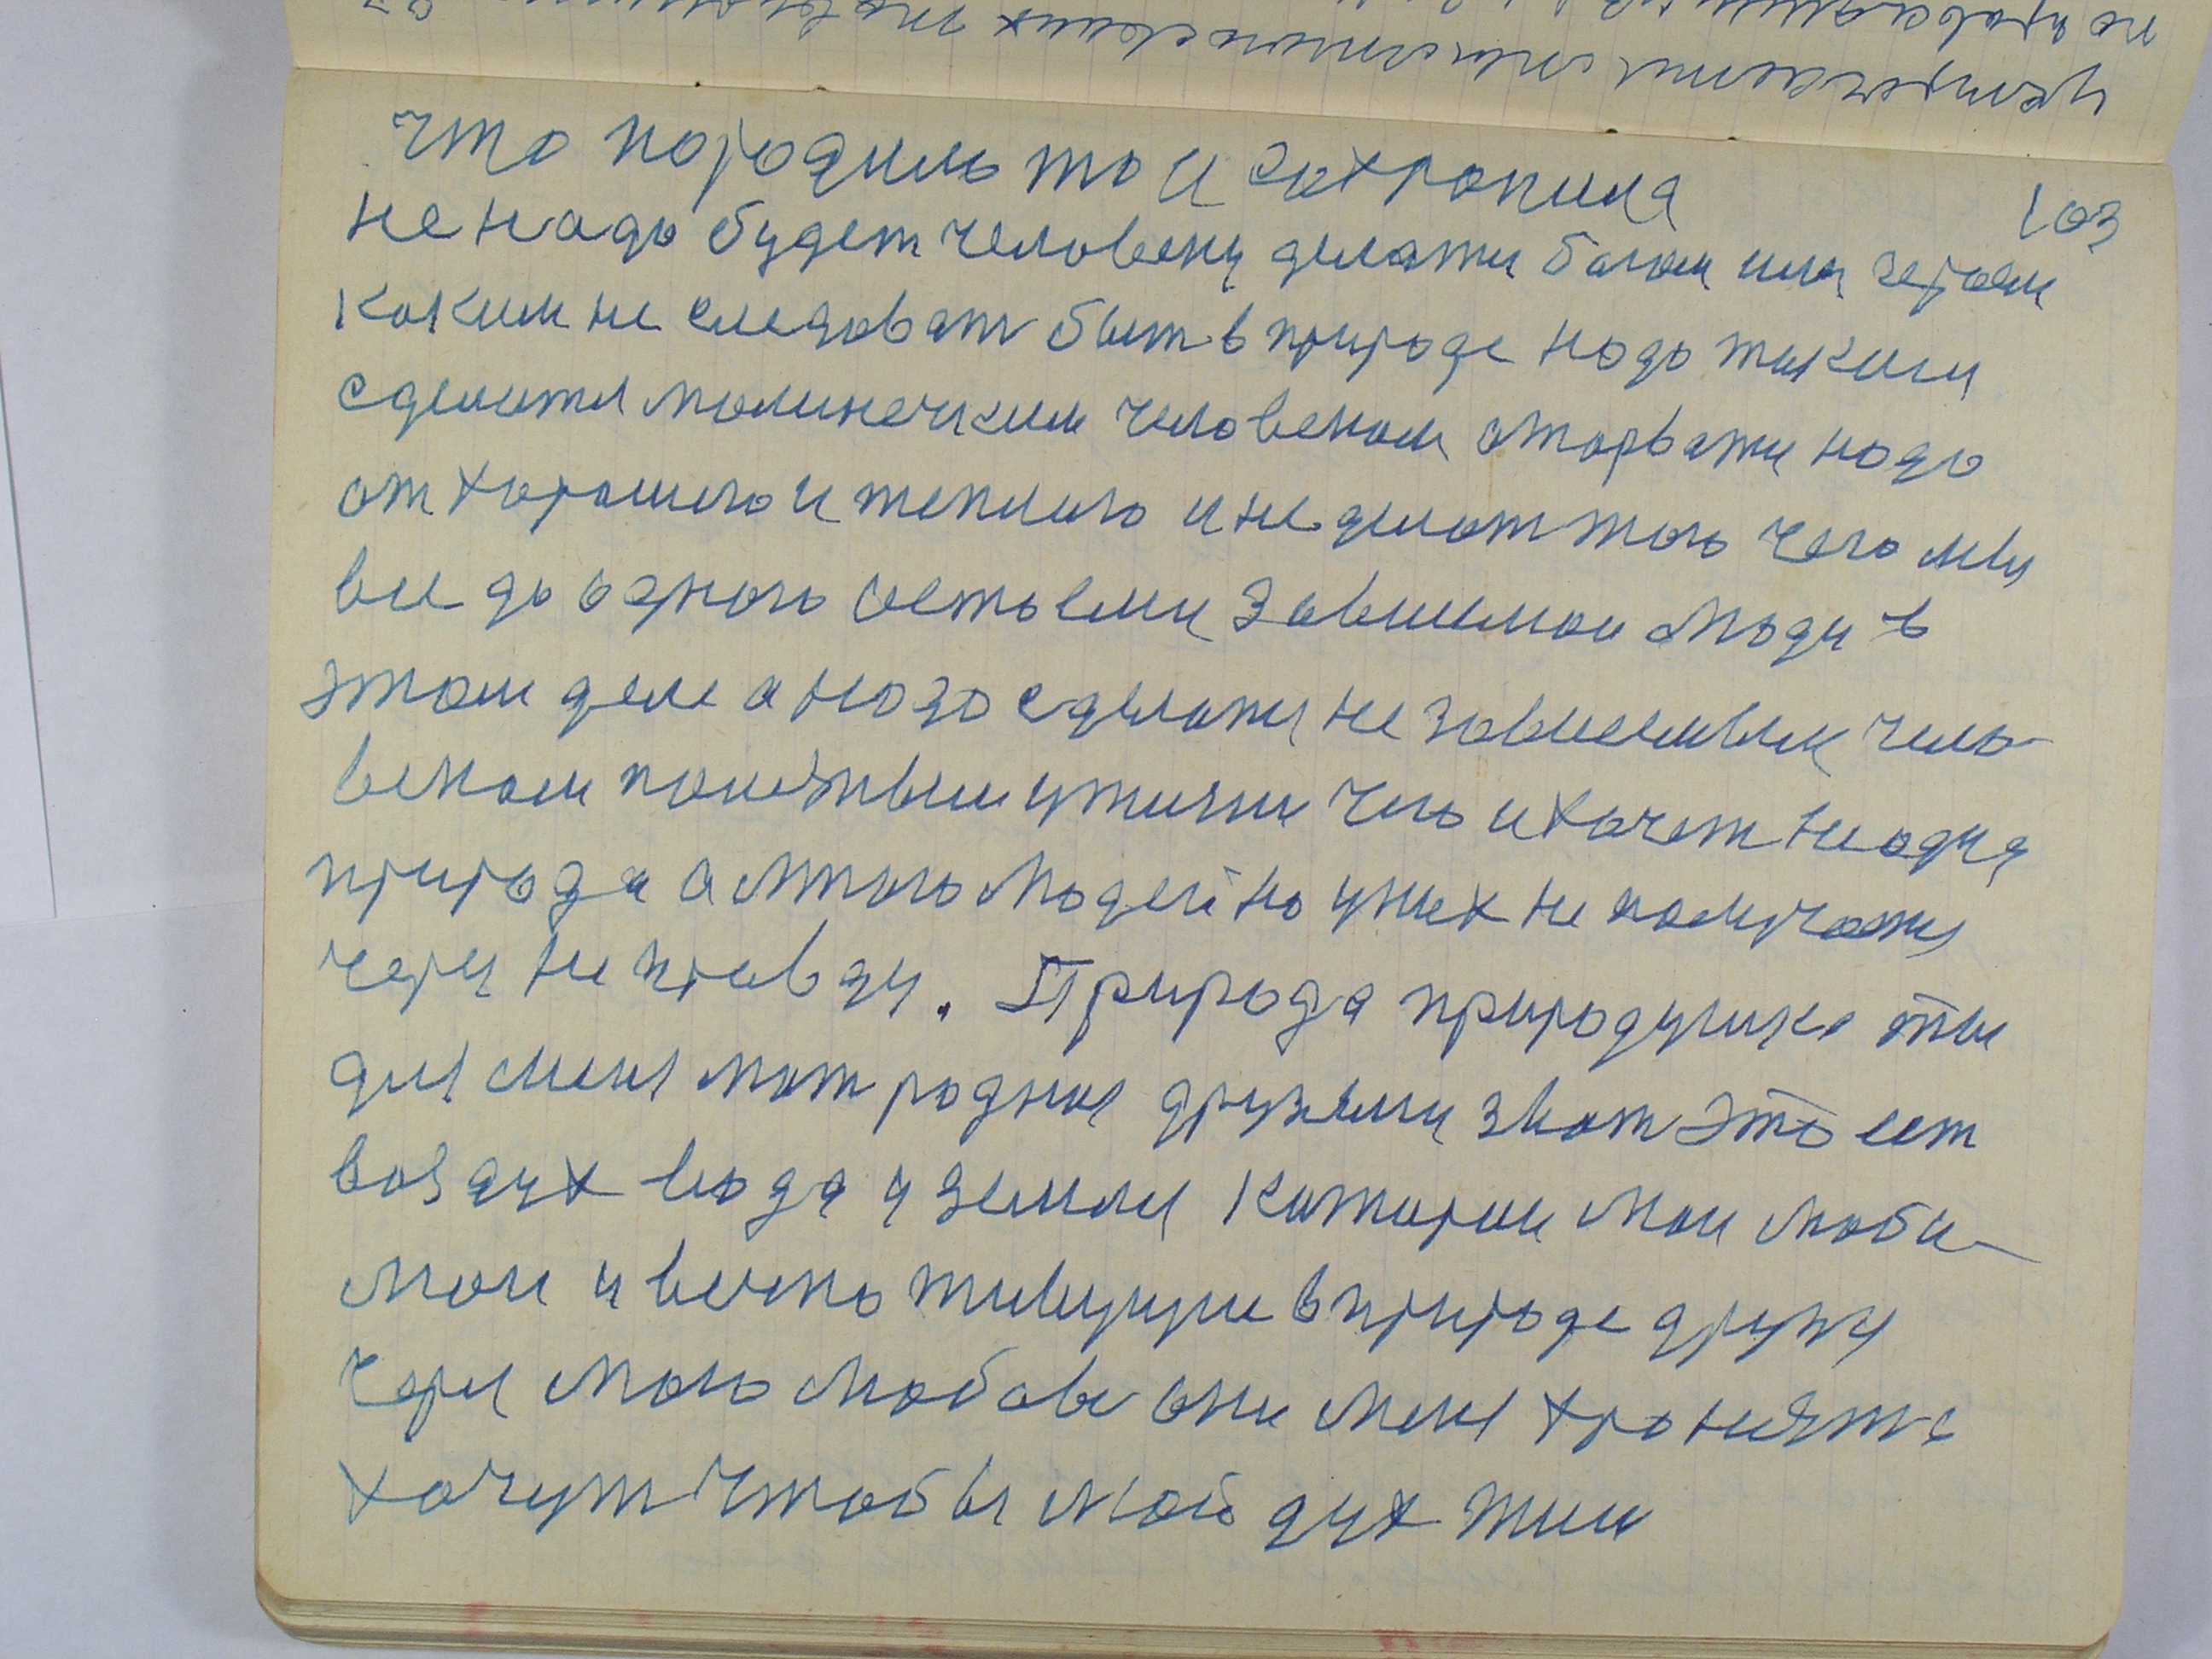 что породило то и сохронила
103
не надо будет человеку делати богом или героем
каким не следоват быт в природе надо таким
сделатя малинечким человеком оторвати надо
от хорошего и теплого и не делат того чего мы
все до одного естьеми зависимои люди в
этом деле а надо сделати не зависимым чело-
веком полезным у жизни чего и хочет не одна
природа а много людей но у них не получаетя
через не правду. Природа природушка ты
для меня мат родная друзями зват это ест
воздух вода и земля катории мои люби-
мои и вечно живущие в природе друзя
через мою любов они меня хронять
хочут чтобы мой дух жил